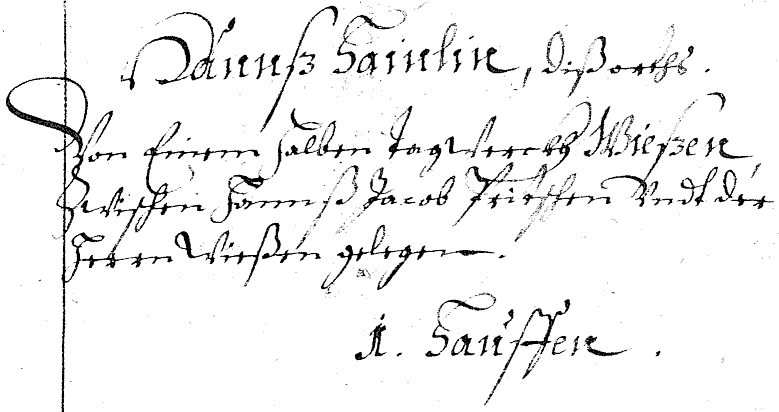 Hannß Hainlin, dißorths.
Von Einem halben tagwerckhs Wießen,
Zwischen Hannß Jacob Fritschen Vndt der
Herrn Wießen gelegen.
1. Hauffen.